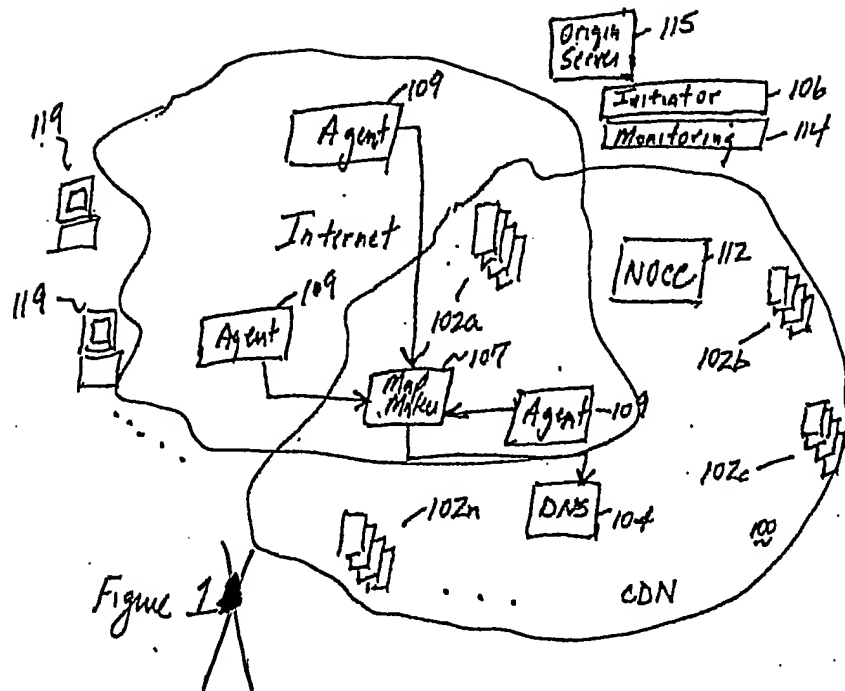 Origin
Server
115
Initiator
106
Monitoring
114
109
Agent
119
Internet
NOCC
112
109
119
Agent
102a
107
Map
Maker
102b
Agent
109
102c
DNS
104
100
102n
...
CDN
Figure 1